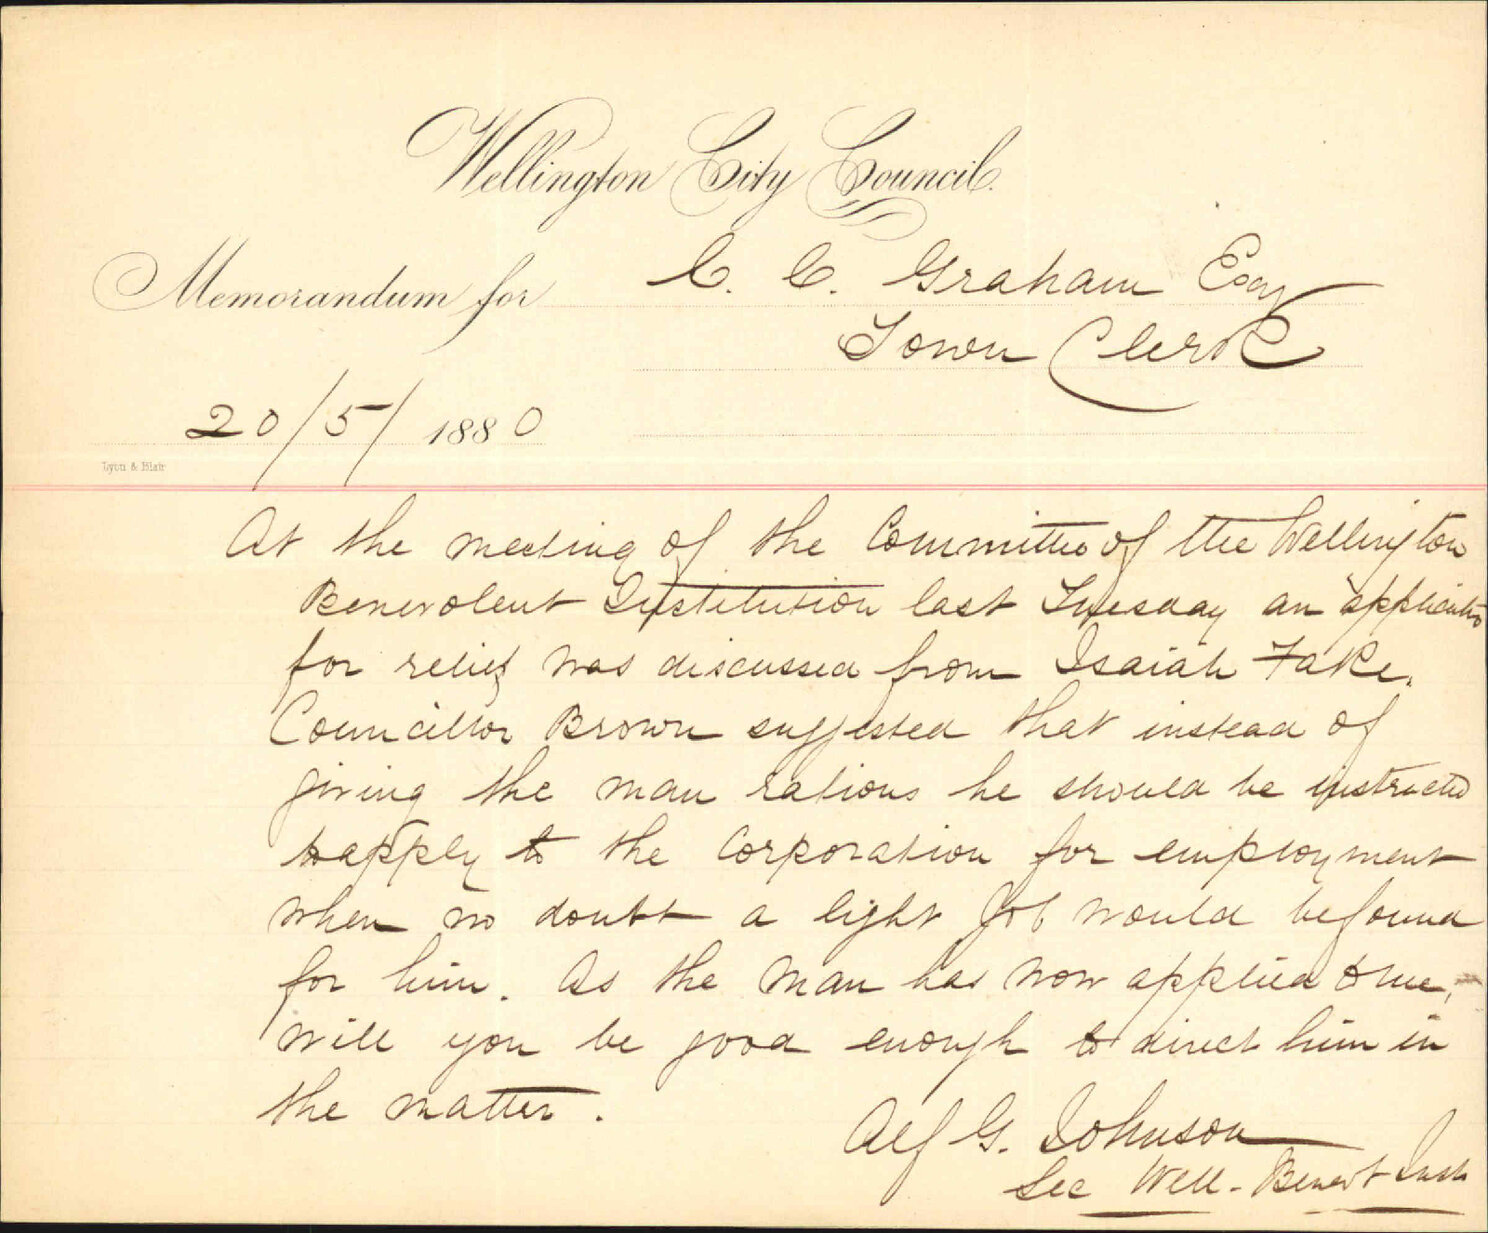 Wellington City Council.
Memorandum for C. C. Graham Esqr
Town Clerk
20/5/1880
Lyon & Blair
At the meeting of the Committee of the Wellington
Benevolent Institution last Tuesday an applicatn
for relief was discussed from Isaiah Fake.
Councillor Brown suggested that instead of
giving the man rations he should be instructed
to apply to the Corporation for employment
when no doubt a light job would be found
for him. As the man has now applied to me,
will you be good enough to direct him in
the matter.
Alf G. Johnson
Sec Well - Benevt Inst